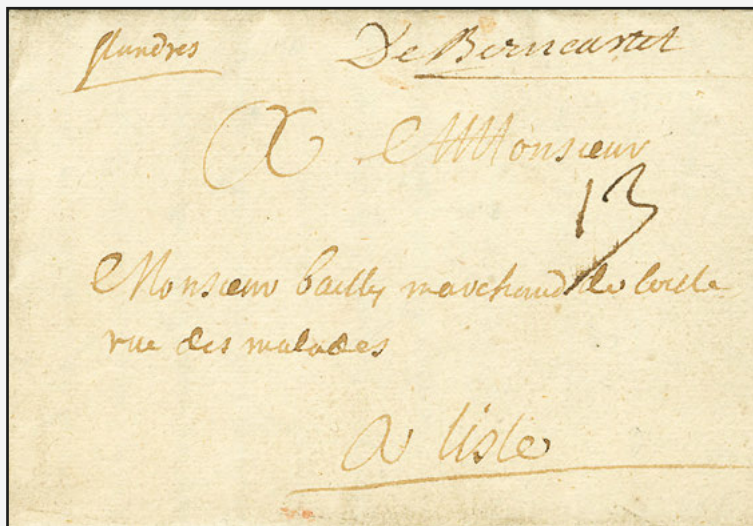 flandres
De Berncastel
A Monsieur
13
Monsieur bailly marchand de toille
rue des malades
A lisle